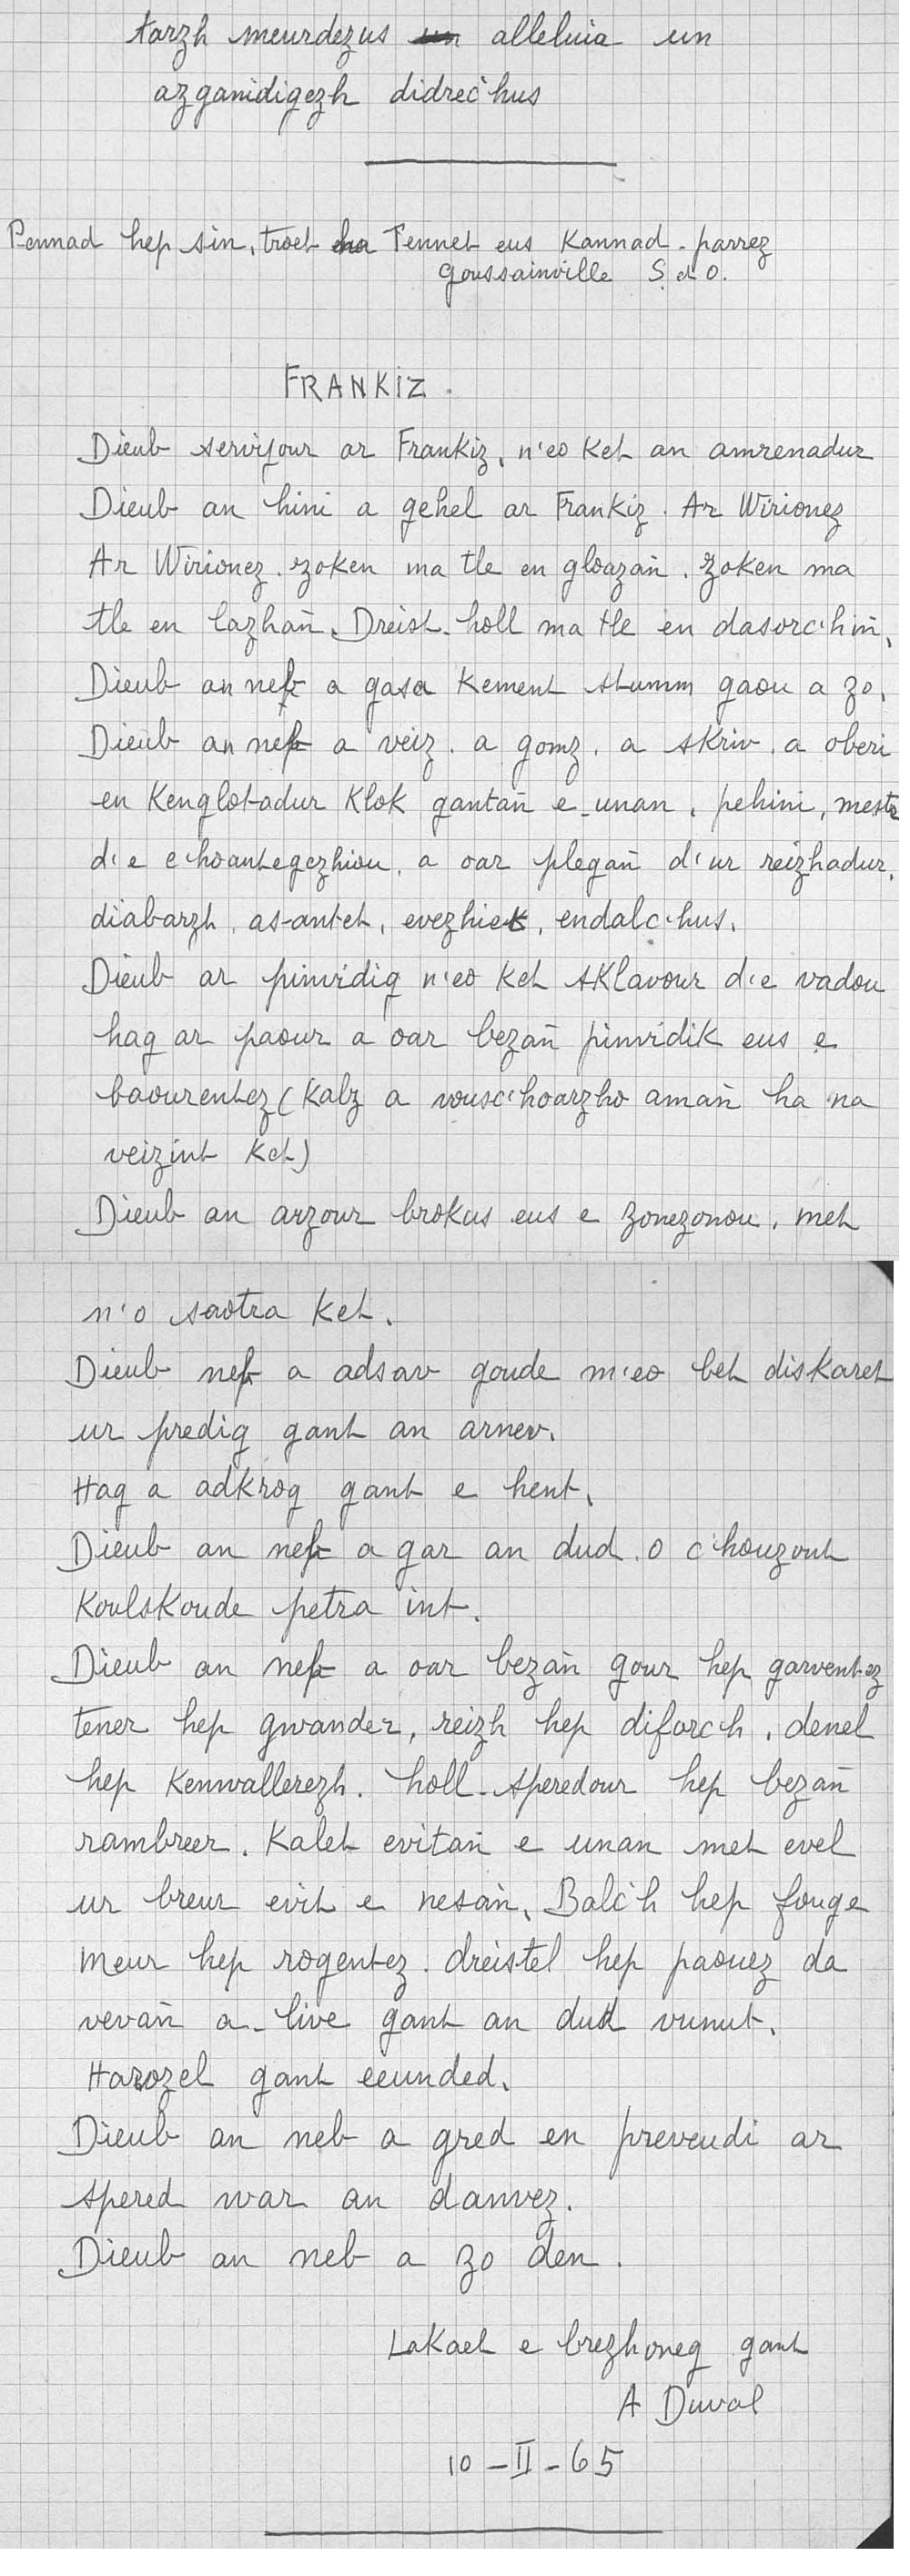 tarzh meurdezus alleluia un
azganidigezh didrec'hus
Pennad hep sin, troet ha Tennet eus Kannad-parrez
Goussainville S. d O.
FRANKIZ.
Dieub servijour ar Frankiz, n'eo ket an amrenadur
Dieub an hini a gehel ar Frankiz. Ar Wirionez
Ar Wirionez. zoken ma tle en gloazañ. zoken ma
tle en lazhañ. Dreist-holl ma tle en dasorc'hiñ.
Dieub an neb a gasa kement stumm gaou a zo.
Dieub an neb a veiz. a gomz. a skriv. a oberi
en Kenglotadur Klok gantañ e-unan, pehini, mestr
d'e c'hoantegezhiou, a oar plegañ d'ur reizhadur,
diabarzh, as-antet, evezhiek, endalc'hus.
Dieub ar pinvidig n'eo ket sklavour d'e vadou
hag ar paour a oar bezañ pinvidik eus e
baourentez (Kalz a vousc'hoarzho amañ ha na
veizint ket)
Dieub an arzour brokus eus e zonezonou, met
n'o saotra ket.
Dieub neb a adsav goude m'eo bet diskaret
ur predig gant an arnev.
Hag a adkrog gant e hent.
Dieub an neb a gar an dud. o c'houzout
Koulskoude petra int.
Dieub an neb a oar bezañ gour hep garventez
tener hep gwander, reizh hep diforc'h, denel
hep Kenwallerezh. holl-speredour hep bezañ
rambreer. Kalet evitañ e unan met evel
ur breur evit e nesañ. Balc'h hep fouge
meur hep rogentez. dreistel hep paouez da
vevañ a-live gant an dud vunut.
Harozel gant eeunded.
Dieub an neb a gred en preveudi ar
spered war an danvez.
Dieub an neb a zo den.
Lakaet e brezhoneg gant
A Duval
10-II-65